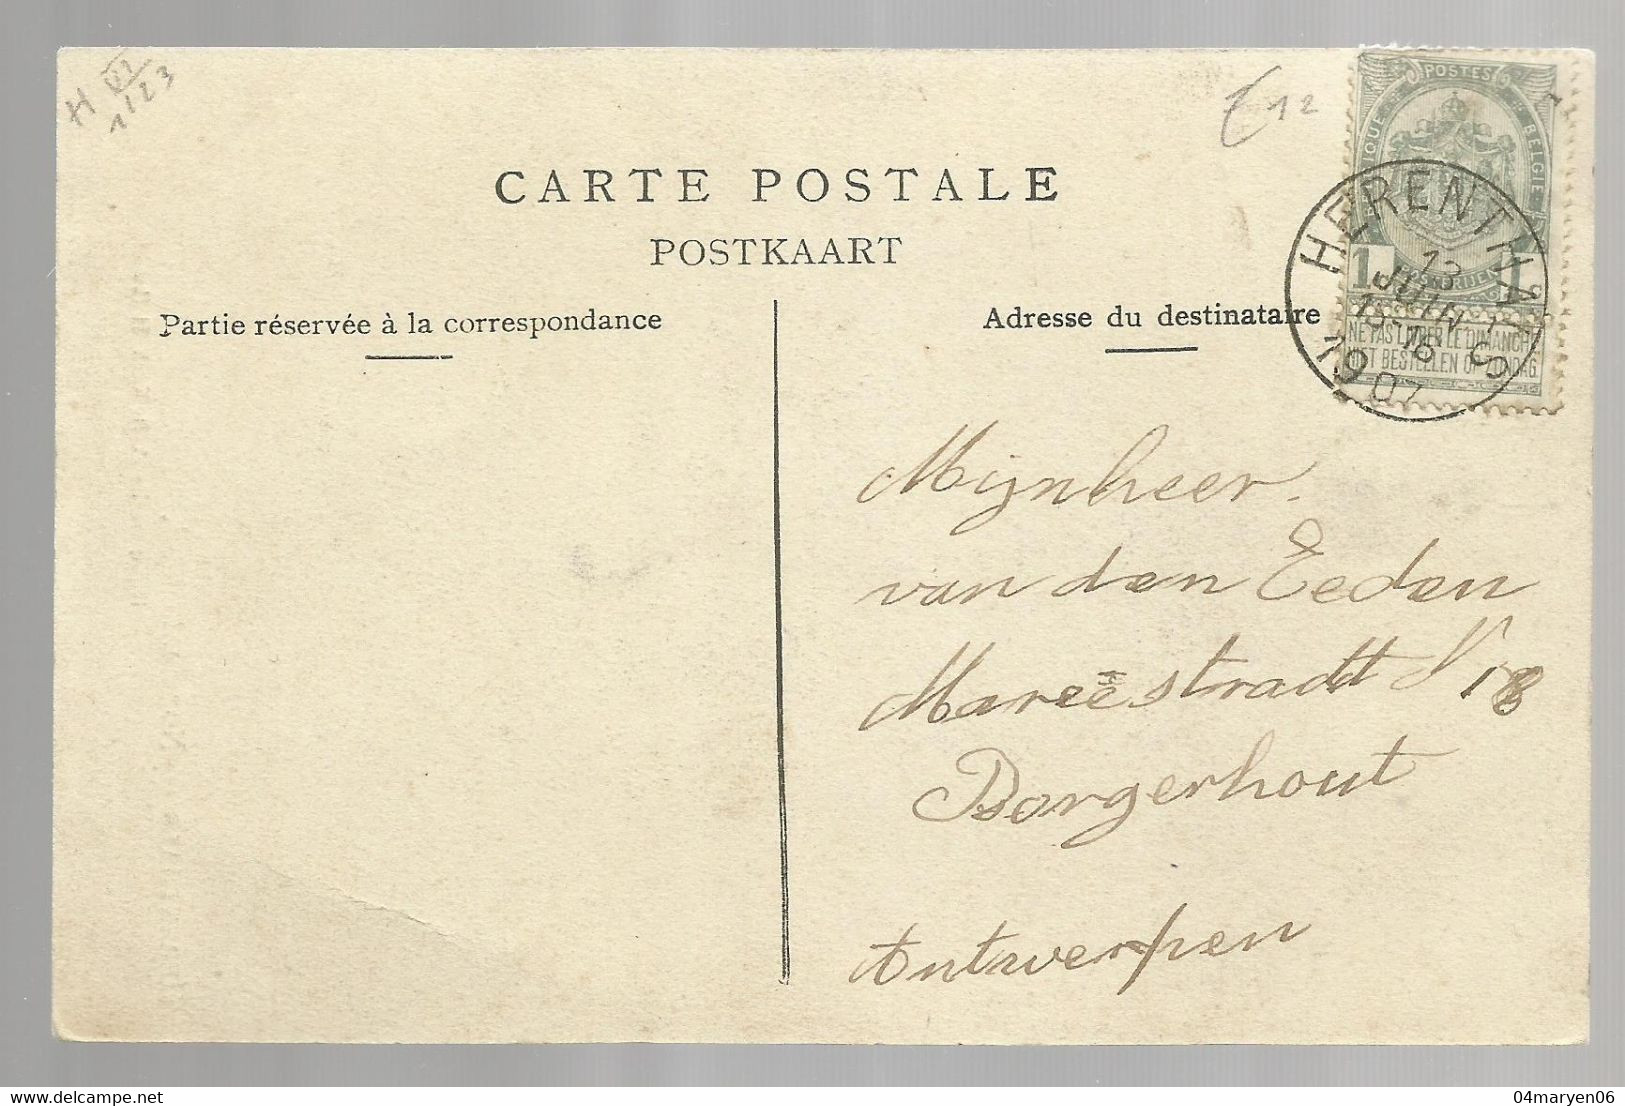 H VI
1123
E 12
CARTE POSTALE
POSTKAART
Partie réservée à la correspondance
Adresse du destinataire
POSTES
BELGIE
1 1
HERENTHALS
13
JUIN
15-16
1907
NE PAS LIVRER LE DIMANCHE
NIET BESTELLEN OP ZONDAG
Mijnheer.
van den Eeden
Mareestradt N 18
Borgerhout
Antwerpen
delcampe.net
04maryen06